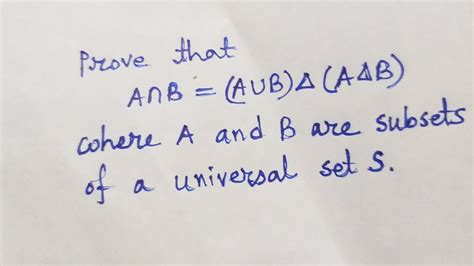 Prove that
A∩B = (A∪B)Δ(AΔB)
where A and B are subsets
of a universal set S.